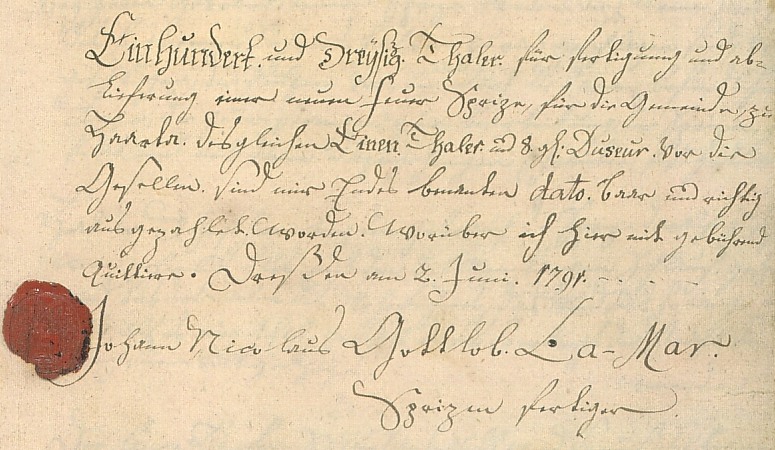 Einhundert. und Dreyßig. Thaler. für fertigung und ab-
lieferung einer neuen Feuer Sprize, für die Gemeinde, zu
Haartha. desgleichen Einen Thaler und 8. gl: Duseur. vor die
Gesellen. sind mir Endes benanten dato. baar und richtig
ausgezahlet. worden. Worüber ich hier mit gebührend
Quittiere. Dreßden am 2. Juni. 1791.
Johann Nicolaus Gottlob. La-Mar.
Sprizen fertiger.